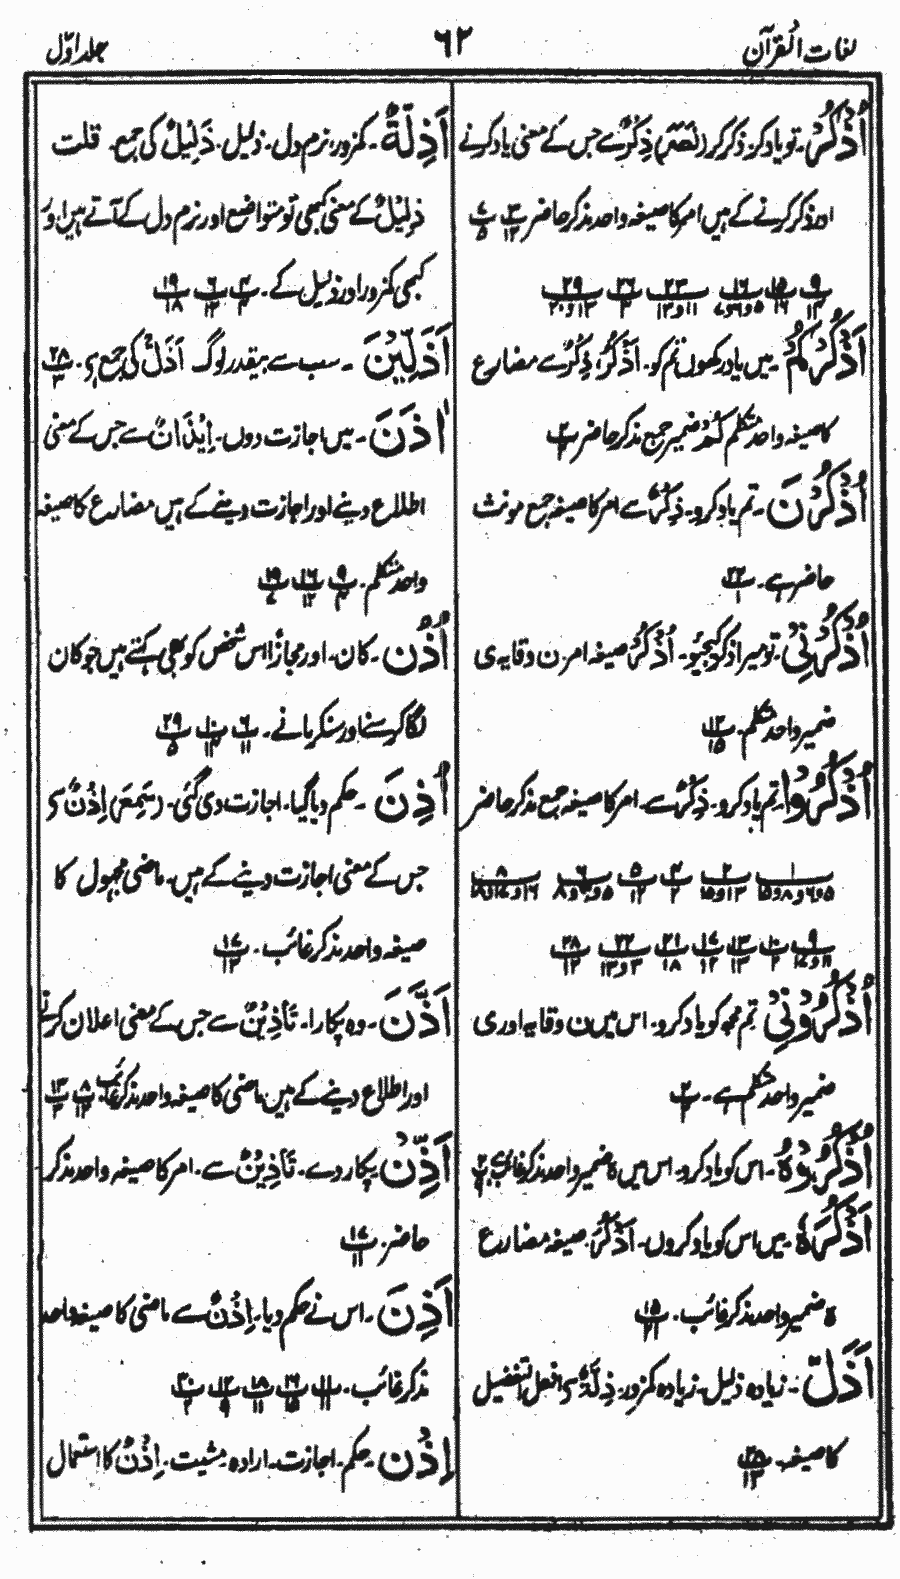 لغات القرآن
۶۲
جلد اوّل
اُذْكُرْ۔ تو یاد کر۔ ذکر کر (نَصَرَ) ذِكْرٌ سے جس کے معنی یاد کرنے
اور ذکر کرنے کے ہیں امر کا صیغہ واحد مذکر حاضر
اَذْكُرْكُمْ۔ میں یاد رکھوں تم کو۔ اَذْكُرْ، ذِكْرٌ سے مضارع
کا صیغہ واحد متکلم كُمْ ضمیر جمع مذکر حاضر
اُذْكُرْنَ۔ تم یاد کرو۔ ذِكْرٌ سے امر کا صیغہ جمع مونث
حاضر ہے۔
اُذْكُرْنِيْ۔ تو میرا ذکر کیجئو۔ اُذْكُرْ صیغہ امر۔ ن وقایہ ی
ضمیر واحد متکلم۔
اُذْكُرُوْا۔ تم یاد کرو۔ ذِكْرٌ سے۔ امر کا صیغہ جمع مذکر حاضر
اُذْكُرُوْنِيْ تم مجھ کو یاد کرو۔ اس میں ن وقایہ اور ی
ضمیر واحد متکلم ہے۔
اُذْكُرُوْهُ۔ اس کو یاد کرو۔ اس میں ہ ضمیر واحد مذکر غائب ہے
اَذْكُرَهٗ۔ میں اس کو یاد کروں۔ اَذْكُرَ صیغہ مضارع
ہ ضمیر واحد مذکر غائب۔
اَذَلَّ۔ زیادہ ذلیل۔ زیادہ کمزور۔ ذِلَّةٌ سے افعل التفضیل
کا صیغہ۔
اَذِلَّةٌ۔ کمزور، نرم دل۔ ذلیل۔ ذَلِيْلٌ کی جمع۔ قلت
ذَلِيْلٌ کے معنی کبھی تو متواضع اور نرم دل کے آتے ہیں اور
کبھی کمزور اور ذلیل کے۔
اَذَلِّيْنَ۔ سب سے بیقدر لوگ اَذَلُّ کی جمع ہے۔
اٰذَنَ۔ میں اجازت دوں۔ اِيْذَانٌ سے جس کے معنی
اطلاع دینے اور اجازت دینے کے ہیں مضارع کا صیغہ
واحد متکلم۔
اُذُنٌ۔ کان۔ اور مجازاً اس شخص کو بھی کہتے ہیں جو کان
لگا کر سنے اور سنکر مانے۔
اُذِنَ۔ حکم دیا گیا۔ اجازت دی گئی۔ (سَمِعَ) اِذْنٌ سے
جس کے معنی اجازت دینے کے ہیں۔ ماضی مجہول کا
صیغہ واحد مذکر غائب۔
اَذَّنَ۔ وہ پکارا۔ تَأْذِيْنٌ سے جس کے معنی اعلان کرنے
اور اطلاع دینے کے ہیں۔ ماضی کا صیغہ واحد مذکر غائب۔
اَذِّنْ۔ پکار دے۔ تَأْذِيْنٌ سے۔ امر کا صیغہ واحد مذکر
حاضر۔
اَذِنَ۔ اس نے حکم دیا۔ اِذْنٌ سے ماضی کا صیغہ واحد
مذکر غائب۔
اِذْنِ۔ حکم۔ اجازت۔ ارادہ۔ مشیت۔ اِذْنٌ کا استعمال